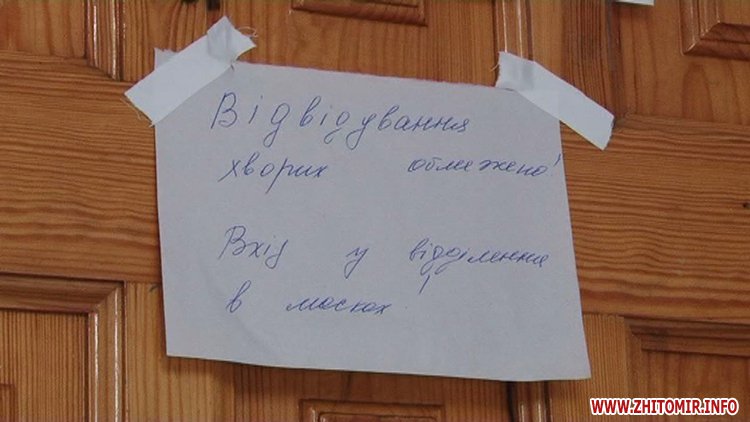 Відвідування
хворих обмежено!
Вхід у відділення
в масках!
WWW.ZHITOMIR.INFO